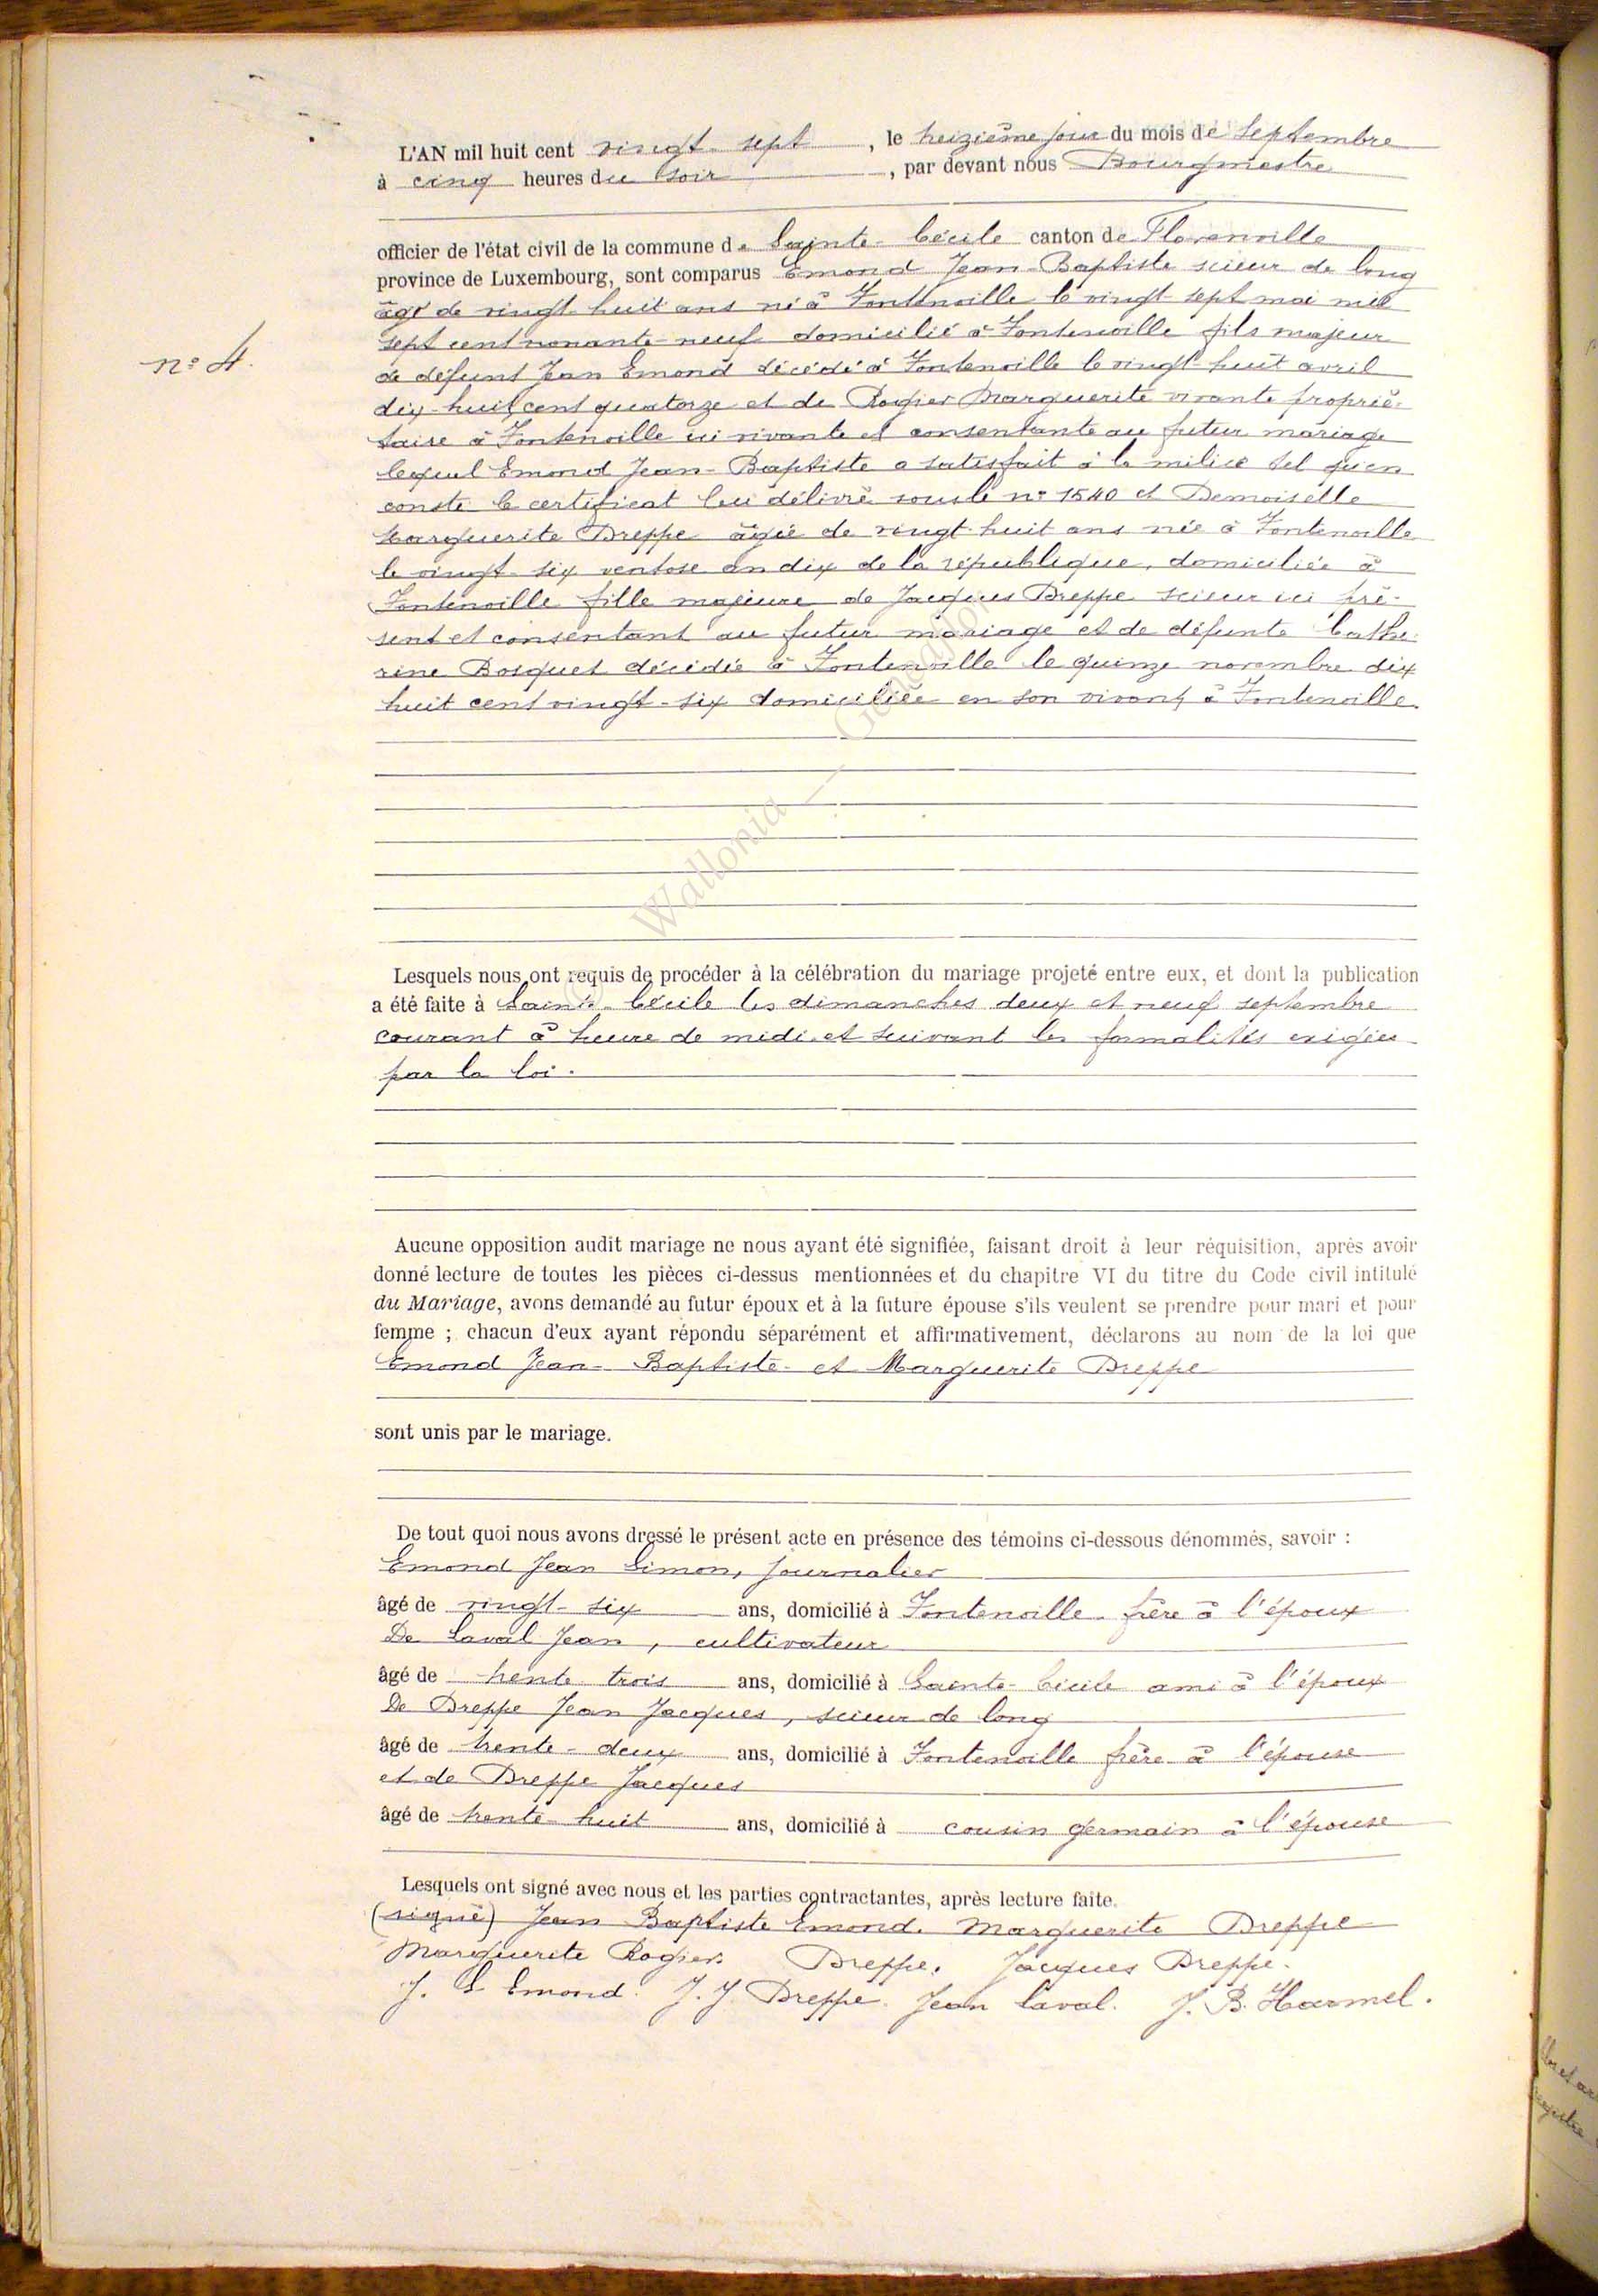 L'AN mil huit cent vingt-sept, le treizième jour du mois de Septembre
à cinq heures du soir, par devant nous Bourgmestre
officier de l'état civil de la commune de Sainte-Cécile canton de Florenville
province de Luxembourg, sont comparus Emond Jean-Baptiste scieur de long
âgé de vingt-huit ans né à Fontenoille le vingt-sept mai mil
sept cent nonante-neuf domicilié à Fontenoille fils majeur
n° 4.
de défunt Jean Emond décédé à Fontenoille le vingt-huit avril
dix-huit cent quatorze et de Rogier Marguerite vivante proprié-
taire à Fontenoille ici vivante et consentante au futur mariage
lequel Emond Jean-Baptiste a satisfait à la milice tel qu'en
conste le certificat lui délivré sous le n° 1540 et Demoiselle
Marguerite Dreppe âgée de vingt-huit ans née à Fontenoille
le vingt-six ventose an dix de la république, domiciliée à
Fontenoille fille majeure de Jacques Dreppe scieur ici pré-
sent et consentant au futur mariage et de défunte Cathe-
rine Bosquet décédée à Fontenoille le quinze novembre dix
huit cent vingt-six domiciliée en son vivant à Fontenoille.
Wallonia
Lesquels nous ont requis de procéder à la célébration du mariage projeté entre eux, et dont la publication
a été faite à Sainte-Cécile les dimanches deux et neuf septembre
courant à heure de midi et suivant les formalités exigées
par la loi.
Aucune opposition audit mariage ne nous ayant été signifiée, faisant droit à leur réquisition, après avoir
donné lecture de toutes les pièces ci-dessus mentionnées et du chapitre VI du titre du Code civil intitulé
du Mariage, avons demandé au futur époux et à la future épouse s'ils veulent se prendre pour mari et pour
femme ; chacun d'eux ayant répondu séparément et affirmativement, déclarons au nom de la loi que
Emond Jean-Baptiste et Marguerite Dreppe
sont unis par le mariage.
De tout quoi nous avons dressé le présent acte en présence des témoins ci-dessous dénommés, savoir :
Emond Jean Simon, journalier
âgé de vingt-six ans, domicilié à Fontenoille frère à l'époux
De Laval Jean, cultivateur
âgé de trente trois ans, domicilié à Sainte-Cécile ami à l'époux
De Dreppe Jean Jacques, scieur de long
âgé de trente-deux ans, domicilié à Fontenoille frère à l'épouse
et de Dreppe Jacques
âgé de trente-huit ans, domicilié à cousin germain à l'épouse
Lesquels ont signé avec nous et les parties contractantes, après lecture faite.
(signé) Jean Baptiste Emond. Marguerite Dreppe
Marguerite Rogier. Dreppe. Jacques Dreppe.
J. S Emond. J. J. Dreppe. Jean Laval. J. B. Harmel.